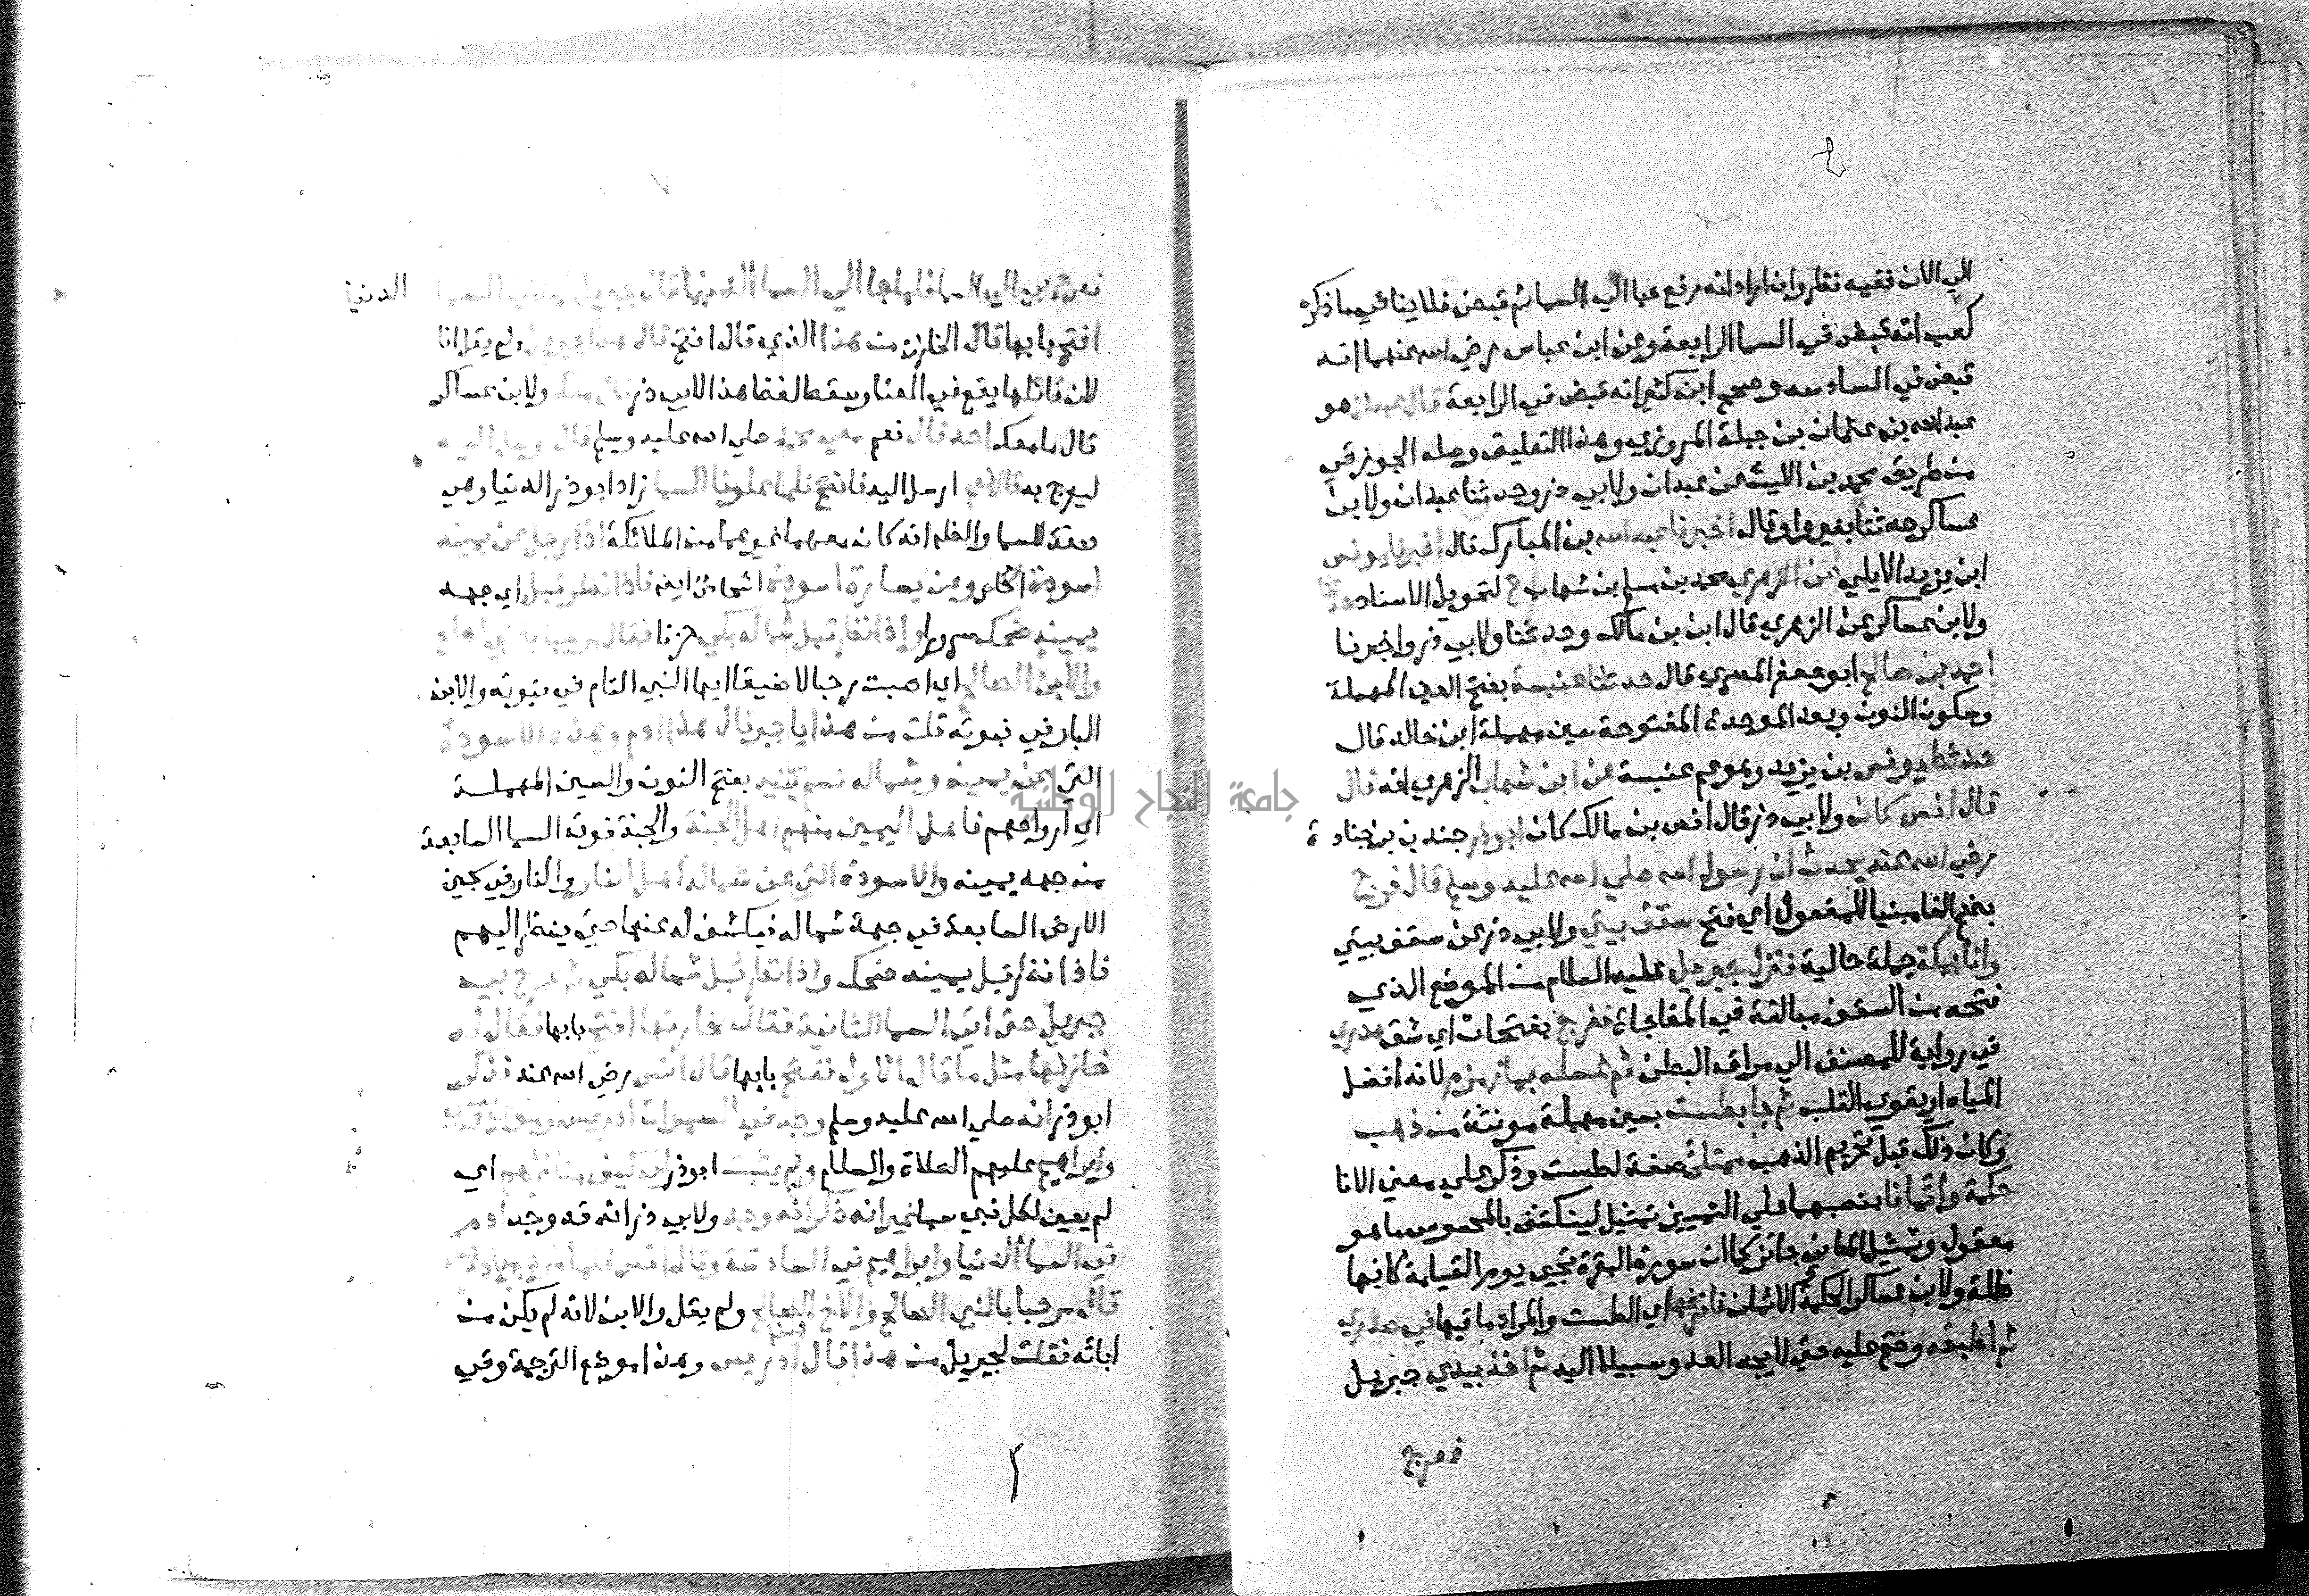 الي الان ففيه نظر وان اراد انه رفع حيا الي السما ثم قبض فلا ينافي ما ذكره
كعب انه قبض في السما الرابعة وعن ابن عباس رضي الله عنهما انه
قبض في السادسه وصحح ابن كثير انه قبض في الرابعة قال عبدان هو
عبد الله بن عثمان بن جبلة المروزي وهذا التعليق وصله الجوزقي
من طريق محمد بن الليث عن عبدان ولابي ذر وحدثنا عبدان ولابن
عساكر حدثنا بغير واو قال اخبرنا عبد الله بن المبارك قال اخبرنا يونس
ابن يزيد الايلي عن الزهري محمد بن مسلم بن شهاب ح لتحويل الاسناد حدثنا
ولابن عساكر عن الزهري قال انس بن مالك وحدثنا ولابي ذر واخبرنا
احمد بن صالح ابو جعفر المصري قال حدثنا عنبسة بفتح العين المهملة
وسكون النون وبعد الموحدة المفتوحة سين مهملة ابن خالد قال
حدثنا يونس بن يزيد وهو عم عنبسة عن ابن شهاب الزهري انه قال
قال انس كان ولابي ذر قال انس بن مالك كان ابو ذر جندب بن جنادة
رضي الله عنه يحدث ان رسول الله صلي الله عليه وسلم قال فرج
بضم الفا مبنيا للمفعول اي فتح سقف بيتي ولابي ذر عن سقف بيتي
وانا بمكة جملة حالية فنزل جبريل عليه السلام من الموضع الذي
فتحه من السقف مبالغة في المفاجاة ففرج بفتحات اي شق صدري
في رواية للمصنف الي مراق البطن ثم غسله بماء زمزم لانه افضل
المياه او يقوي القلب ثم جا بطست بسين مهملة مونثة من ذهب
وكان ذلك قبل تحريم الذهب ممتلئ صفة لطست وذكر علي معني الانا
حكمة وايمانا بنصبهما علي التمييز تمثيل لينكشف بالمحسوس ما هو
معقول وتمثيل المعاني جائز كما ان سورة البقرة تجي يوم القيامة كانها
ظلة ولابن عساكر الحكمة الايمان فافرغها اي الطست والمراد ما فيها في صدري
ثم اطبقه وختم عليه حتي لا يجد العدو سبيلا اليه ثم اخذ بيدي جبريل
فعرج
فعرج بي الي السما فلما جا الي السما الدنيا قال جبريل لخازن السما
الدنيا
افتح بابها قال الخازن من هذا الذي قال افتح قال هذا جبريل ولم يقل انا
لان قائلها يقع في العنا وسقط لفظ هذا لابي ذر قال معك ولابن عساكر
قال ما معك احد قال نعم معي محمد صلي الله عليه وسلم قال ارسل اليه
ليعرج به قال نعم ارسل اليه فافتح فلما علونا السما زاد ابو ذر الدنيا وهي
صفة للسما والظاهر انه كان معهما غيرهما من الملائكة اذا رجل عن يمينه
اسودة اشخاص وعن يساره اسودة اشخاص ايضا فاذا نظر قبل اي جهه
يمينه ضحك سرورا واذا نظر قبل شماله بكي حزنا فقال مرحبا بالنبي الصالح
والابن الصالح اي اصبت رحبا لا ضيقا ايها النبي التام في نبوته والابن
البار في نبوته قلت من هذا يا جبريل قال هذا ادم وهذه الاسودة
التي عن يمينه وشماله نسم بنيه بفتح النون والسين المهملة
اي ارواحهم فاهل اليمين منهم اهل الجنة والجنة فوق السما السابعة
من جهه يمينه والاسودة التي عن شماله اهل النار والنار في سجين
الارض السابعة في جهة شماله فيكشف له عنهما حتي ينظر اليهم
فاذا نظر قبل يمينه ضحك واذا نظر قبل شماله بكي ثم عرج بي
جبريل حتي اتي السما الثانية فقال لخازنها افتح بابها فقال له
خازنها مثل ما قال الاول ففتح بابها قال انس رضي الله عنه فذكر
ابو ذر انه صلي الله عليه وسلم وجد في السموات ادريس وموسي وعيسي
وابراهيم عليهم الصلاة والسلام ولم يثبت ابو ذر لي كيف منازلهم اي
لم يعين لكل نبي سما غير انه ذكر انه وجد ولابي ذر انه قد وجد ادم
في السما الدنيا وابراهيم في السادسة وقال انس فلما مر جبريل
قال مرحبا بالنبي الصالح والاخ الصالح ولم يقل والابن لانه لم يكن من
ابائه فقلت لجبريل من هذا قال هذا ادريس وهذا موضع الترجمة وفي
جامعة النجاح الوطنية